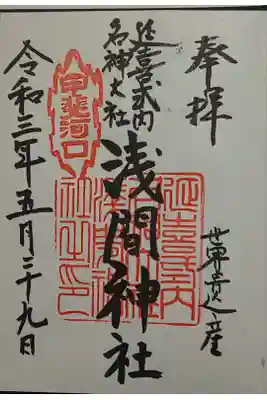 奉拝
世界遺産
延喜式内
名神大社
浅間神社
甲斐河口
令和三年五月二十九日